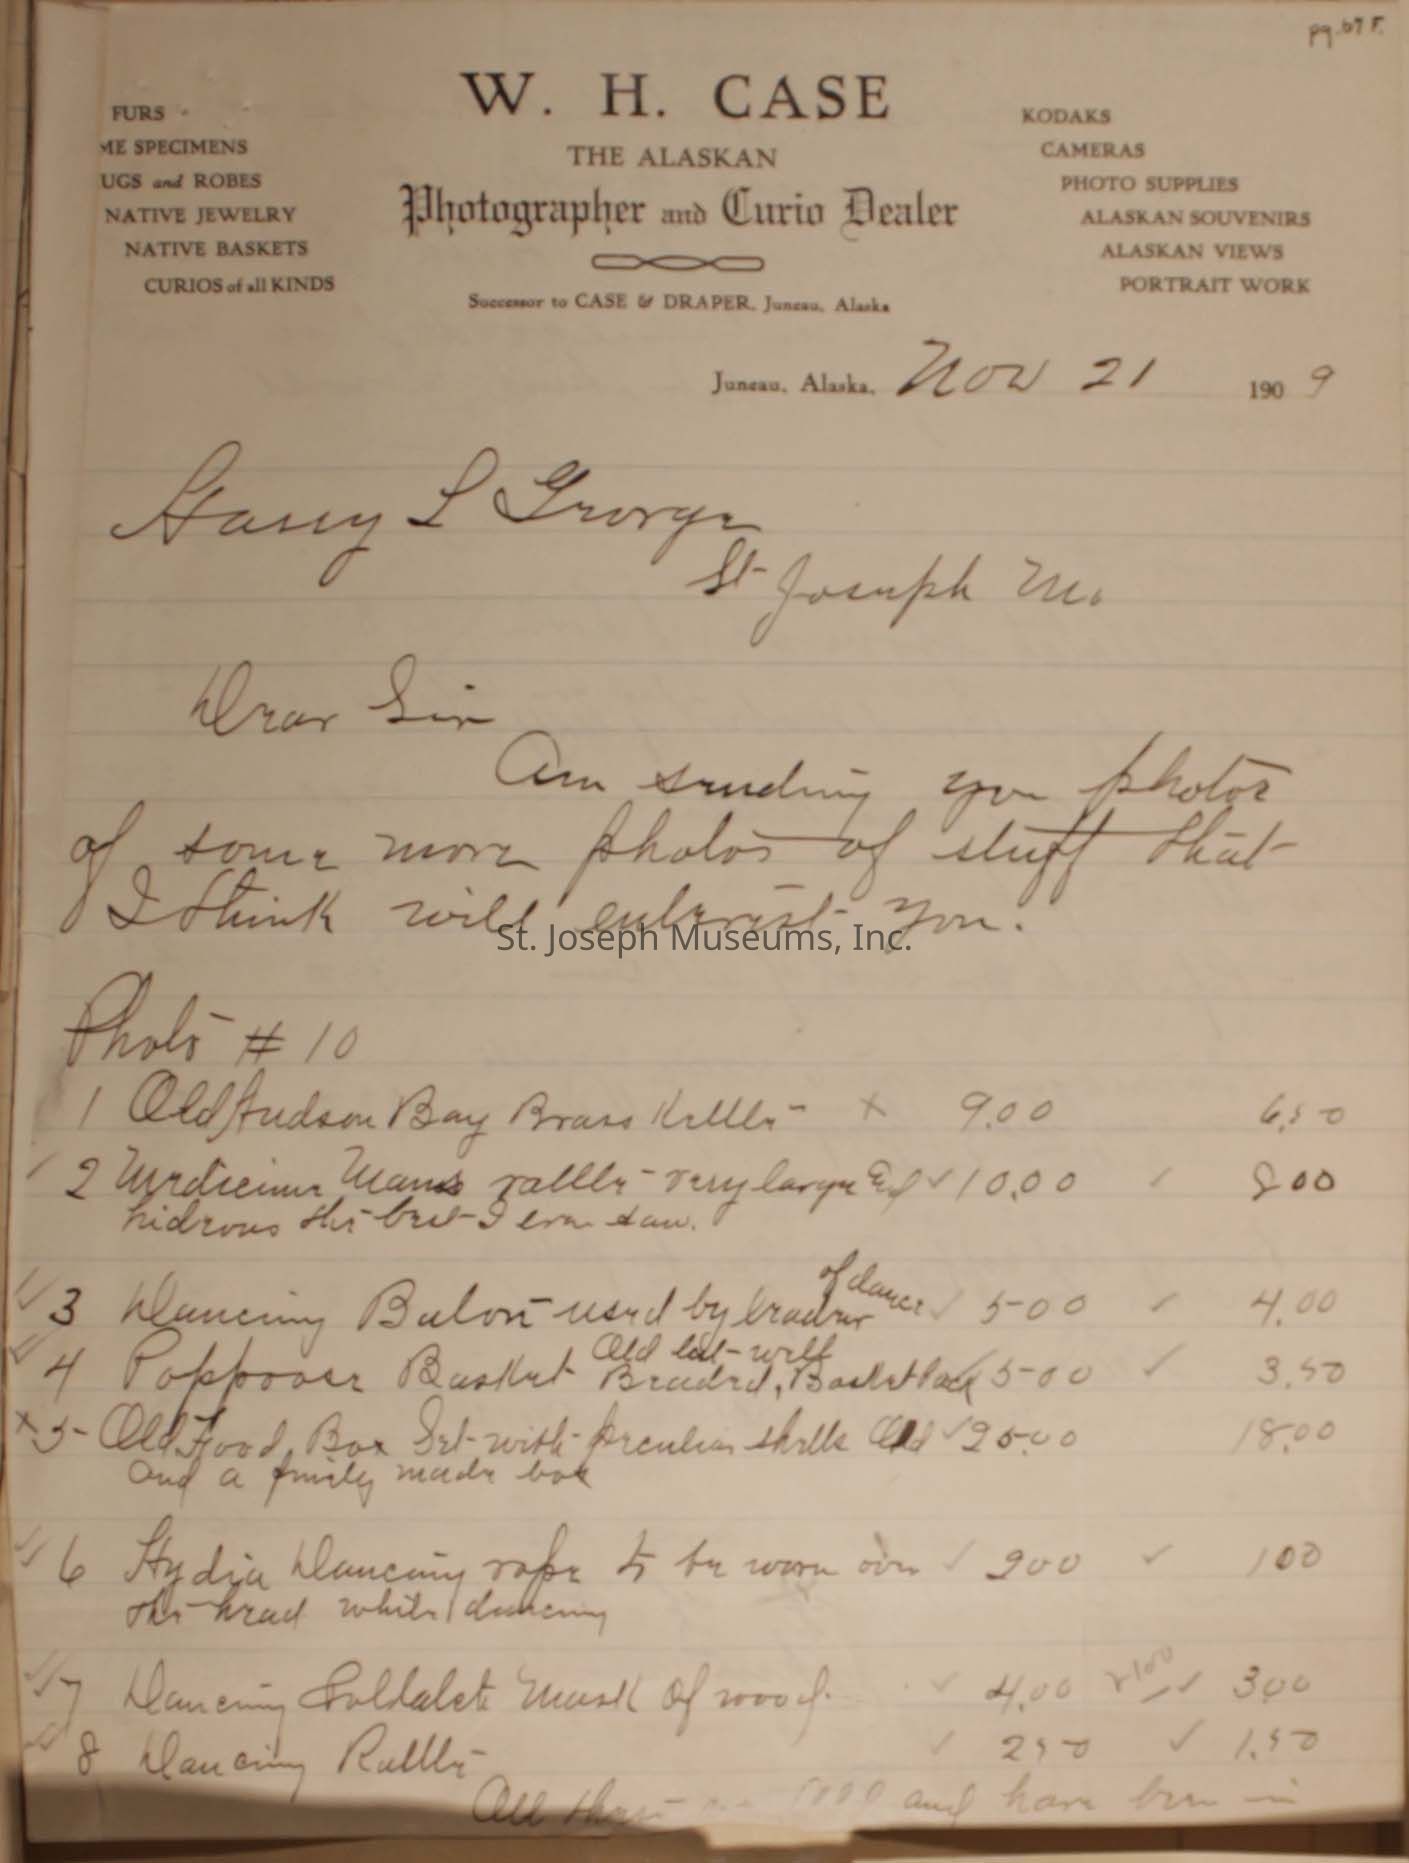 pg. 67 F.
W. H. CASE
THE ALASKAN
Photographer and Curio Dealer
Successor to CASE & DRAPER, Juneau, Alaska
FURS
ME SPECIMENS
UGS and ROBES
NATIVE JEWELRY
NATIVE BASKETS
CURIOS of all KINDS
KODAKS
CAMERAS
PHOTO SUPPLIES
ALASKAN SOUVENIRS
ALASKAN VIEWS
PORTRAIT WORK
Juneau, Alaska, Nov 21 1909
Harry L George
St Joseph Mo.
Dear Sir
Am sending you photos
of some more photos of stuff that
I think will enterest you.
St. Joseph Museums, Inc.
Photo # 10
1 Old Hudson Bay Brass Kettle x 9.00 6.50
2 Medicine Mans rattle very large and 10.00 8.00
hideous the best I ever saw.
of dance
3 Dancing Baton used by leader 5.00 4.00
Old but well
4 Pappoose Basket Beaded, Basket 5.00 3.50
x 5 Old Food Box Set with peculiar shells Old 25.00 18.00
and a finily made box
6 Hydia Dancing rope to be worn over 2.00 1.00
the head while dancing
7 Dancing Mask of wood. 4.00 3.00
8 Dancing Rattle 2.50 1.50
All these and have been in